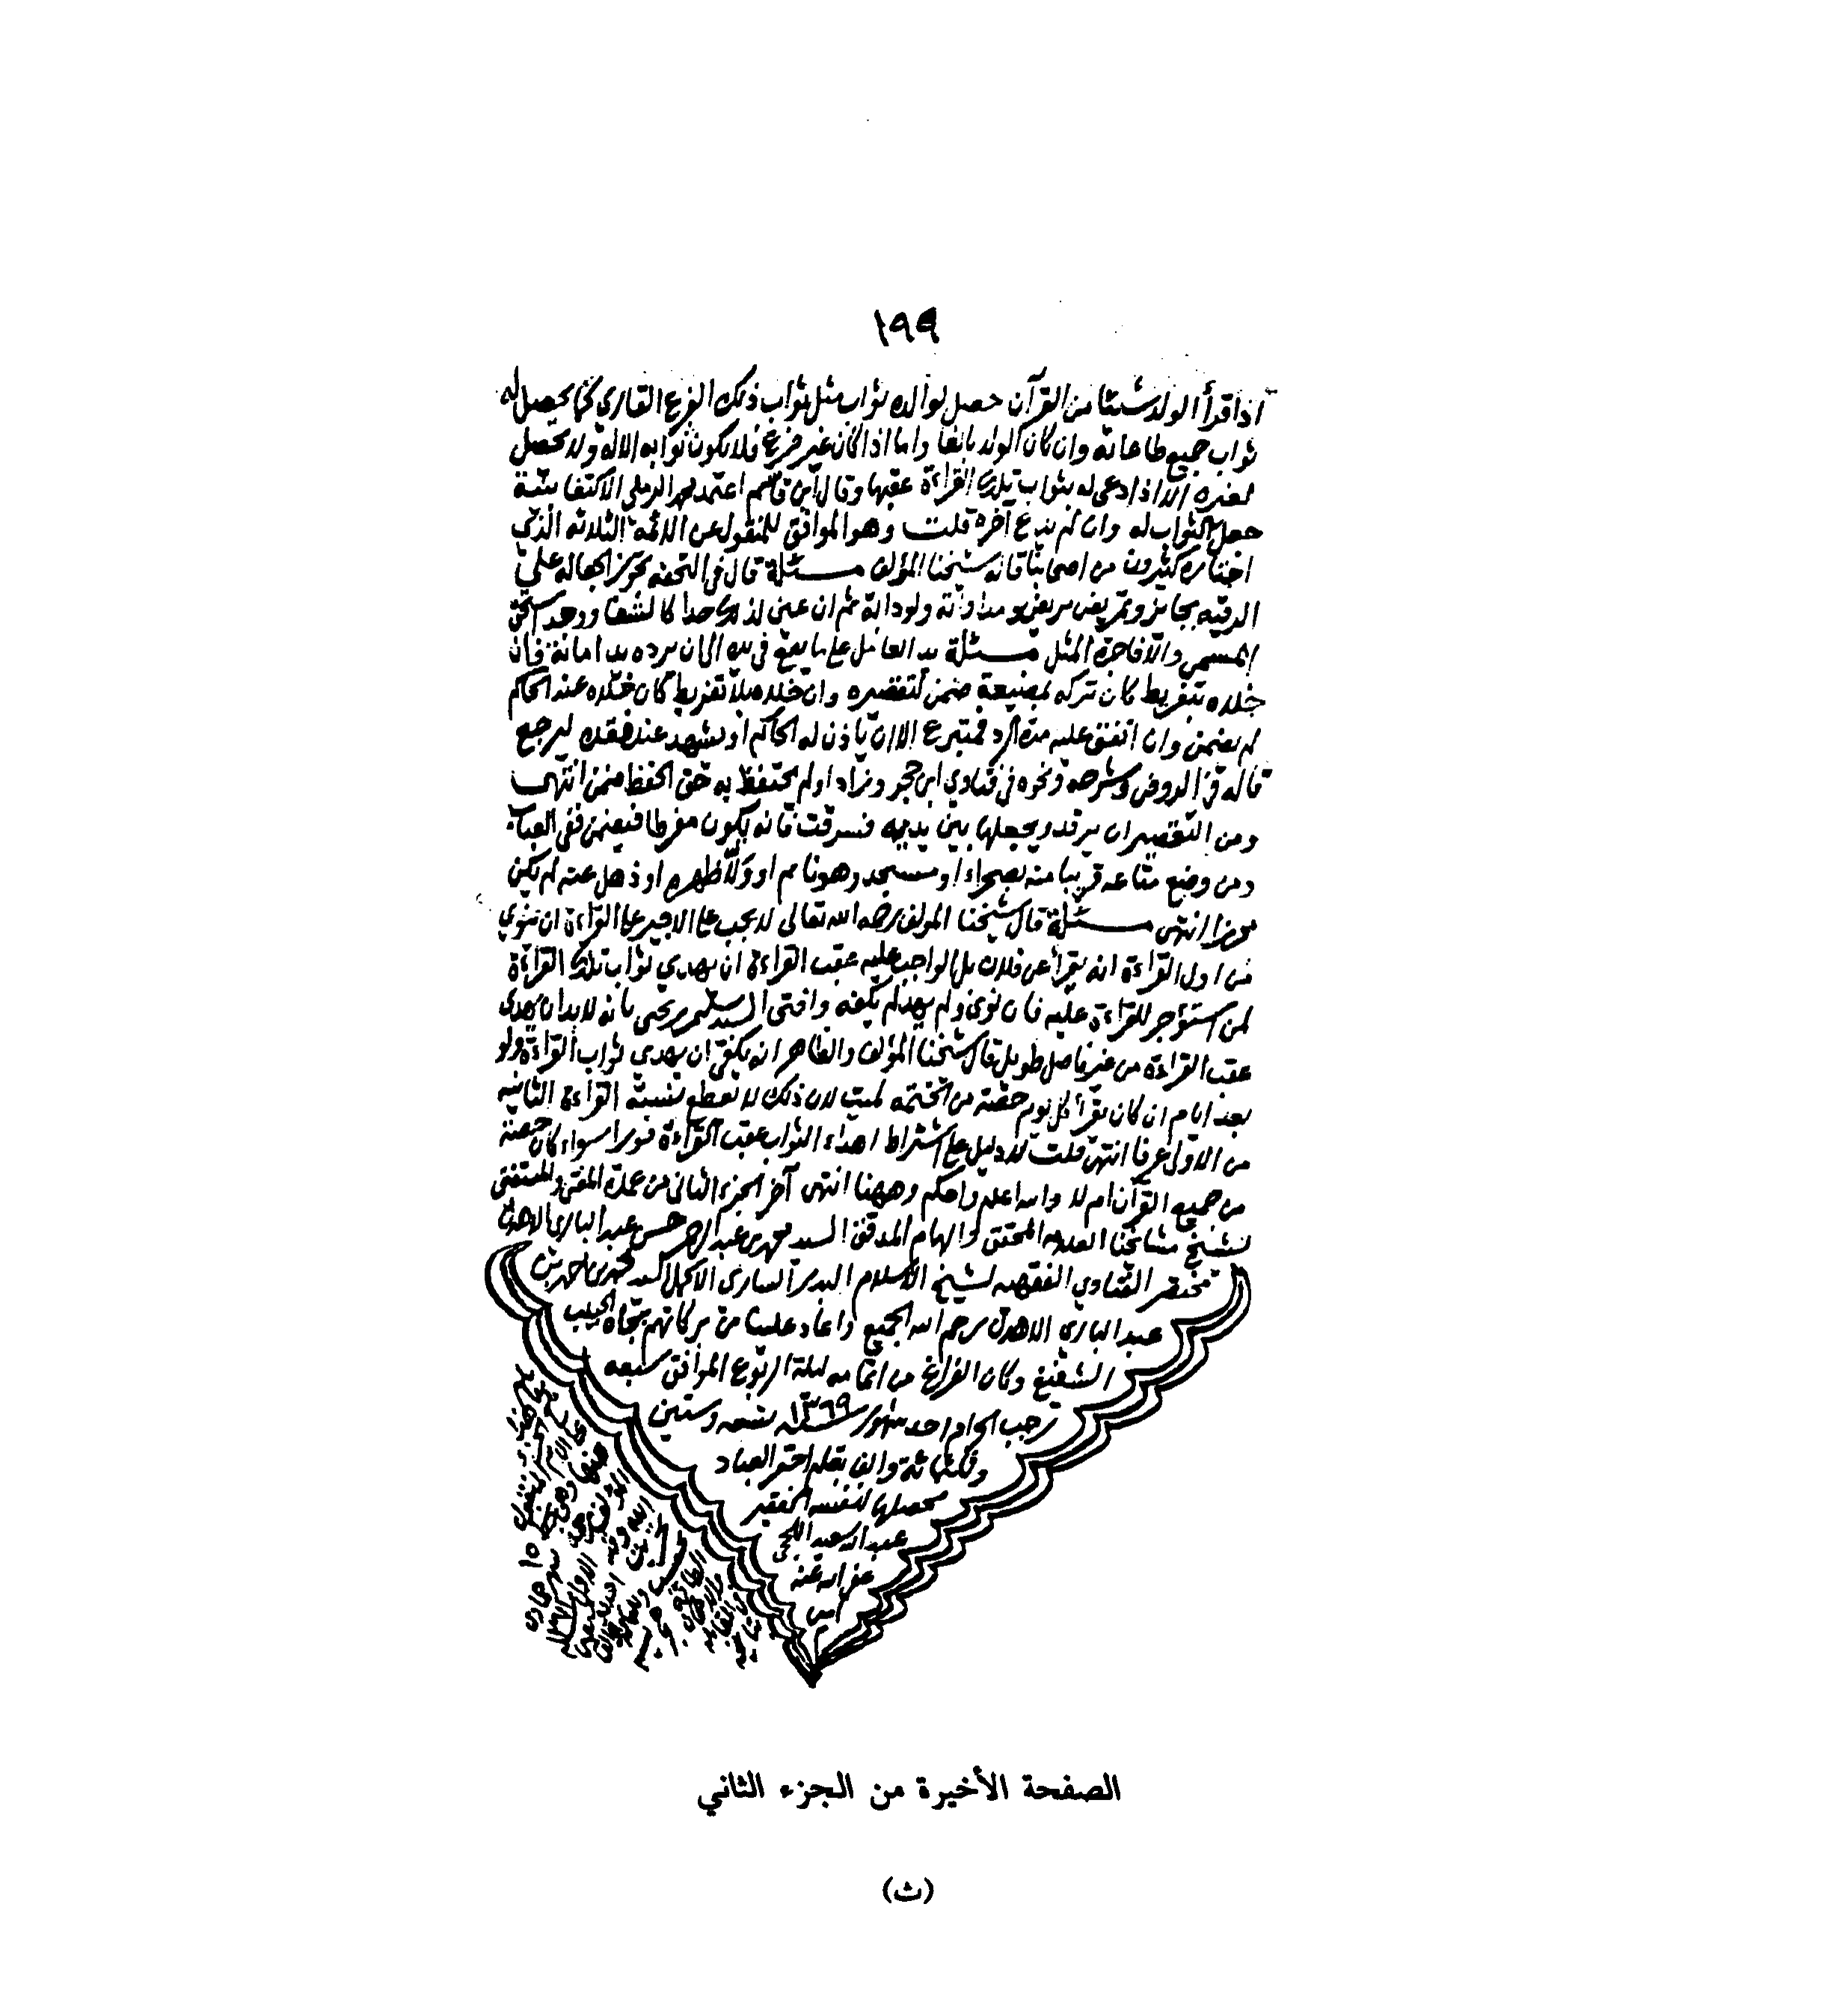 ١٩٩
اذا قرأ الولد شيئا من القرآن حصل لوالده ثواب مثل ثواب ذلك الفرع القاري كما يحصل له
ثواب جميع طاعاته وان كان الولد بالغا واما اذا كان غير فرع فلا يكون ثوابه الا له ولا يحصل
لغيره الا اذا دعى له بثواب تلك القراءة عقبها وقال ابن قاسم اعتمد محمد الرملي الاكتفا بنية
حصل الثواب له وان لم يدع آخره قلت وهو الموافق للمنقول عن الائمة الثلاثه الذي
اختاره كثيرون من اصحابنا قاله شيخنا المؤلف مسئلة قال في التحفه تجوز الجعاله على
الرقيه بجائز وتمريض مريض ومداواته ولو دابة ثم ان عين لذلك حدا كالشفا ووجد استحق
المسمى والا فاجرة المثل مسئلة يد العامل على ما يقع في يده الى ان يرده يد امانة فان
خلاه بتفريط كان تركه بمضيعة ضمن لتقصيره وان خلاه بلا تفريط كان خلاه عند الحاكم
لم يضمن وان انفق عليه مدة الرد فمتبرع الا ان ياذن له الحاكم او يشهد عند فقده ليرجع
قاله في الروض وشرحه ونحوه في فتاوي ابن حجر وزاد او لم يحتفظ به حق الحفظ ضمن انتهى
ومن التقصير ان يرقد ويجعلها بين يديه فسرقت فانه يكون مفرطا فيضمن ففي العباب
ومن وضع متاعه قريبا منه بصحراء او مسجد وهو نائم او ولاه ظهره او ذهل عنه لم يكن
محرزا انتهى مسئلة قال شيخنا المولف رحمه الله تعالى لا يجب على الاجير على القراءة ان ينوي
من اول القراءة انه يقرأ عن فلان بل الواجب عليه عقب القراءة ان يهدي ثواب تلك القراءة
لمن استؤجر للقراءة عليه فان نوى ولم يهد لم يكفه وافتى السيد سليمن بن يحيى بانه لا بد ان يهدى
عقب القراءة من غير فاصل طويل قال شيخنا المؤلف والظاهر انه يكفي ان يهدي ثواب القراءة ولو
بعد ايام ان كان يقرأ كل يوم حصته من الختمه لميت لان ذلك لا يقطع نسبة القراءة الثانيه
من الاولى عرفا انتهى قلت لا دليل على اشتراط اهداء الثواب عقب القراءة فورا سواء كان حصته
من جميع القرآن ام لا والله اعلم واحكم وههنا انتهى آخر الجزء الثاني من عمدة المفتي والمستفتي
لشيخ مشائخنا العلامه المحقق والهمام المدقق السيد محمد بن عبد الرحمن حسن عبد الباري الاهدل
مختصر الفتاوي الفقهيه لشيخ الاسلام البدر الساري الاكمل السيد محمد بن احمد بن
عبد الباري الاهدل رحم الله الجميع واعاد علينا من بركاتهم بجاه الحبيب
الشفيع وكان الفراغ من اتمامه ليلة الربوع الموافق سبعه
رجب الحرام احد شهور سنة ١٣٦٩ تسعه وستين
وثلثمائة والف بقلم احقر العباد
محصلها لنفسه الحقير
عبد الله سعيد اللحجي
غفر الله عنه
الصفحة الأخيرة من الجزء الثاني
(ث)